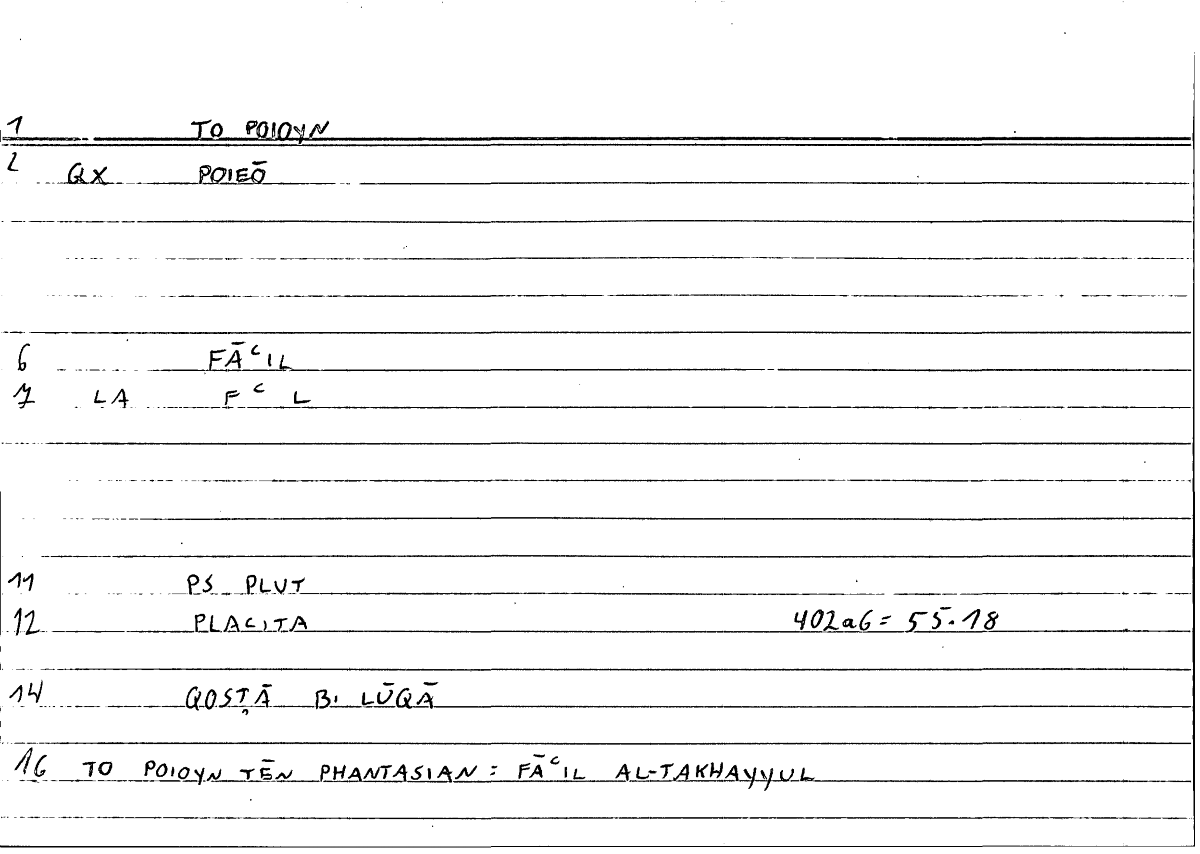 1 TO POIOYN
2 QX POIEŌ
6 FĀʿIL
7 LA F ʿ L
11 PS PLUT
12 PLACITA 402a6 = 55.18
14 QOSṬĀ B. LŪQĀ
16 TO POIOYN TĒN PHANTASIAN = FĀʿIL AL-TAKHAYYUL